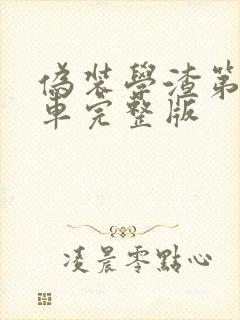 偽裝學渣第
車完整版
凌晨零點心